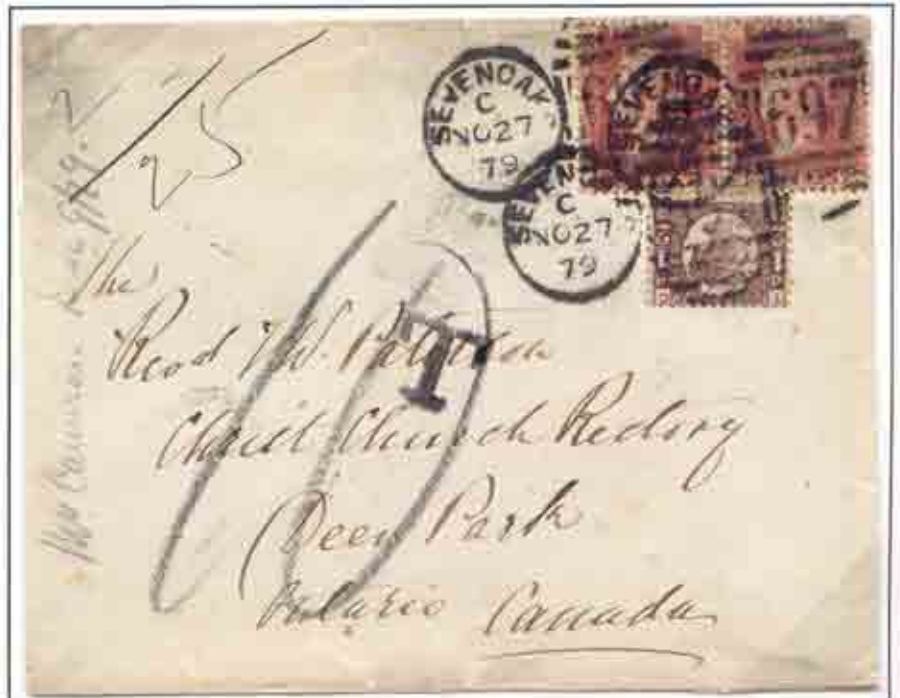 /25
SEVENOAKS
C
NO 27
79
SEVEN
C
NO 27
79
SEVENO
697
10
T
The
Revd T. W. Paterson
Christ Church Rectory
Deer Park
Ontario Canada